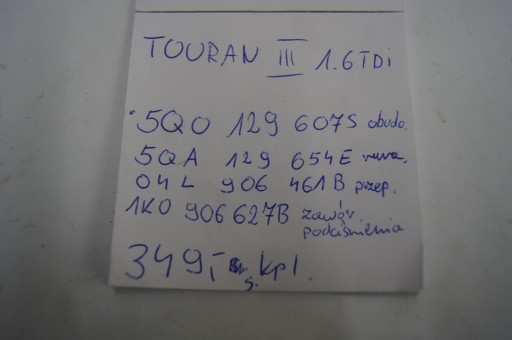 TOURAN III 1.6TDi
5Q0 129 607S obudo.
5QA 129 654E rura.
04L 906 461B przep.
1K0 906 627B zawór.
podciśnienia
349,- kpl.